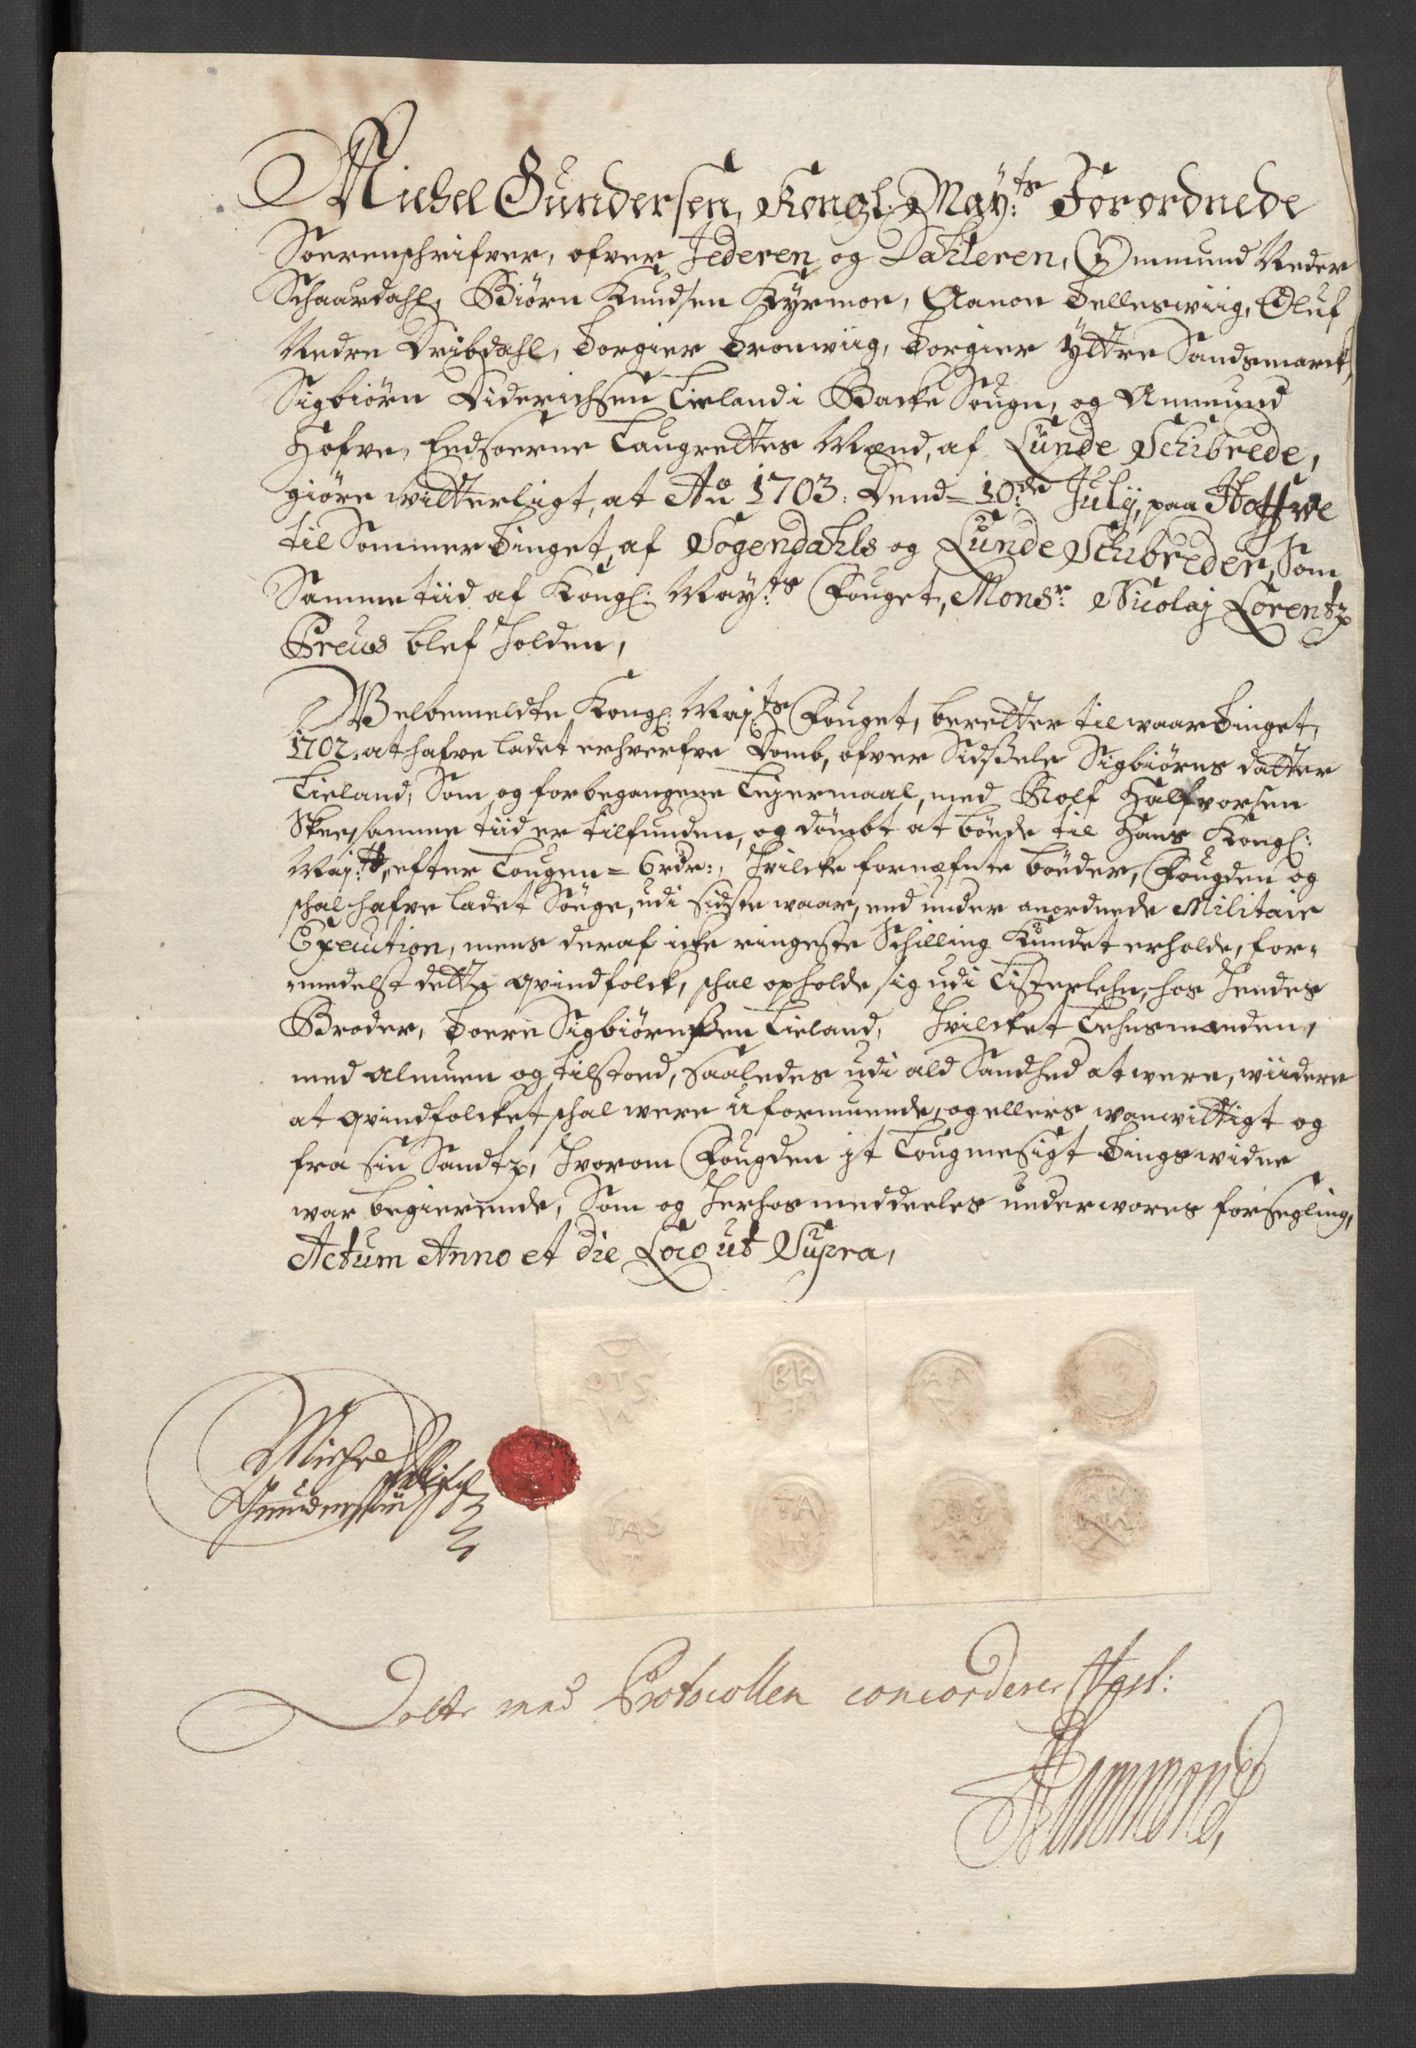 Michel Gundersen, Kongl: May:ts Forordnede
Soerenschrifver, ofver Jederen og Dahleren, Ommund Neder
Schaardahl, Biørn Knudsen Kyrmoe, Aanon Telleswiig, Oluf
Nedre Dribdahl, Torgier Tronwiig, Torgier Yttre Sandsmarck,
Sigbiørn Diderichsen Lieland i Backe Sougn, og Ammund
Hofve, Eedsoerne Laugrettes Mænd, af Lunde Schibrede,
giøre witterligt, at Aõ 1703. Dend = 10de July, paa Hoffwe
til Sommer Tinget, af Sogendahls og Lunde Schibreder, Som
Samme tiid af Kongl: May:ts Fouget, Monsr. Nicolaj Lorentz
Preuus blef holden,
Welbemeldte Kongl: Maj:ts Fouget, beretter til waar Tinget,
1702. at hafve ladet erhverfve Domb, ofver Sidsele Sigbiørns datter
Lieland, Som og for begangene Leyermaal, med Rolf Halfvorsen
Skee, samme tiid er tilfunden, og dømbt at bøede til Hans Kongl:
Maj:tt, efter Lougen = 6 rdr:, hvilcke fornæfnte bøeder, Fougden og
schal hafve ladet Søuge, udi sidste waar, end under anordnede Militair
Execution, mens deraf icke ringeste Schilling Kundet erholde, for-
medelst dette qvindfolck, schal opholde sig udi Listerlehn, hos hendes
Broder, Toere Sigbiørnssen Lieland, hvilcket Lehnsmanden,
med Almuen og tilstoed, saaledes udi ald Sandhed at were, wiidere
at qvindfolcket schal were uformuende, og ellers wanwittigt og
fra sin Sandtz, hvorom Fougden it Lougmesigt Tingswidne
war begierende, Som og herhos meddeeles under wores forsegling,
Actum Anno et die Loco ut Supra,
OTS
BK
AA
Michel
Gundersen
TAS
T
TA
Dette med Protocollen concorderer Test:
Hammond,